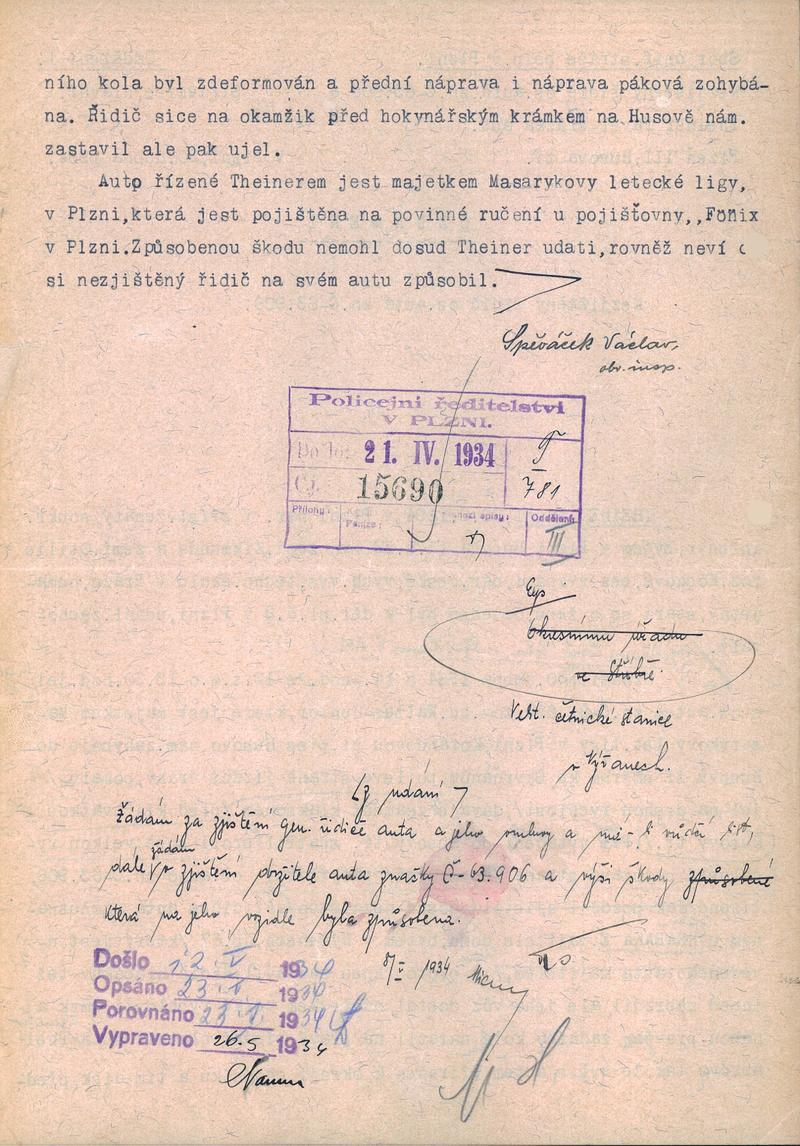 ního kola byl zdeformován a přední náprava i náprava páková zohybá-
na. Řidič sice na okamžik před hokynářským krámkem na Husově nám.
zastavil ale pak ujel.
Auto řízené Theinerem jest majetkem Masarykovy letecké ligy,
v Plzni,která jest pojištěna na povinné ručení u pojišťovny,,Fönix
v Plzni.Způsobenou škodu nemohl dosud Theiner udati,rovněž neví c
si nezjištěný řidič na svém autu způsobil.
Spěváček Václav,
obv. insp.
Policejní ředitelství
V PLZNI.
Došlo: 21. IV. 1934
Čj. 15690
781
Přílohy:
Peníze:
spisy:
Oddělení:
III
Okresnímu úřadu
ve Stříbře.
Velit. četnické stanice
v Kýšanech.
Z udání
Žádám za zjištění gen. řidiče auta a jeho omluvy a má-li vůdčí list,
dále žádám zjištění držitele auta značky Č-63.906 a výši škody způsobené
která na jeho vozidle byla způsobena.
8/V 1934
Došlo 12. V 1934
Opsáno 23. V. 1934
Porovnáno 23. V. 1934
Vypraveno 26. 5 1934